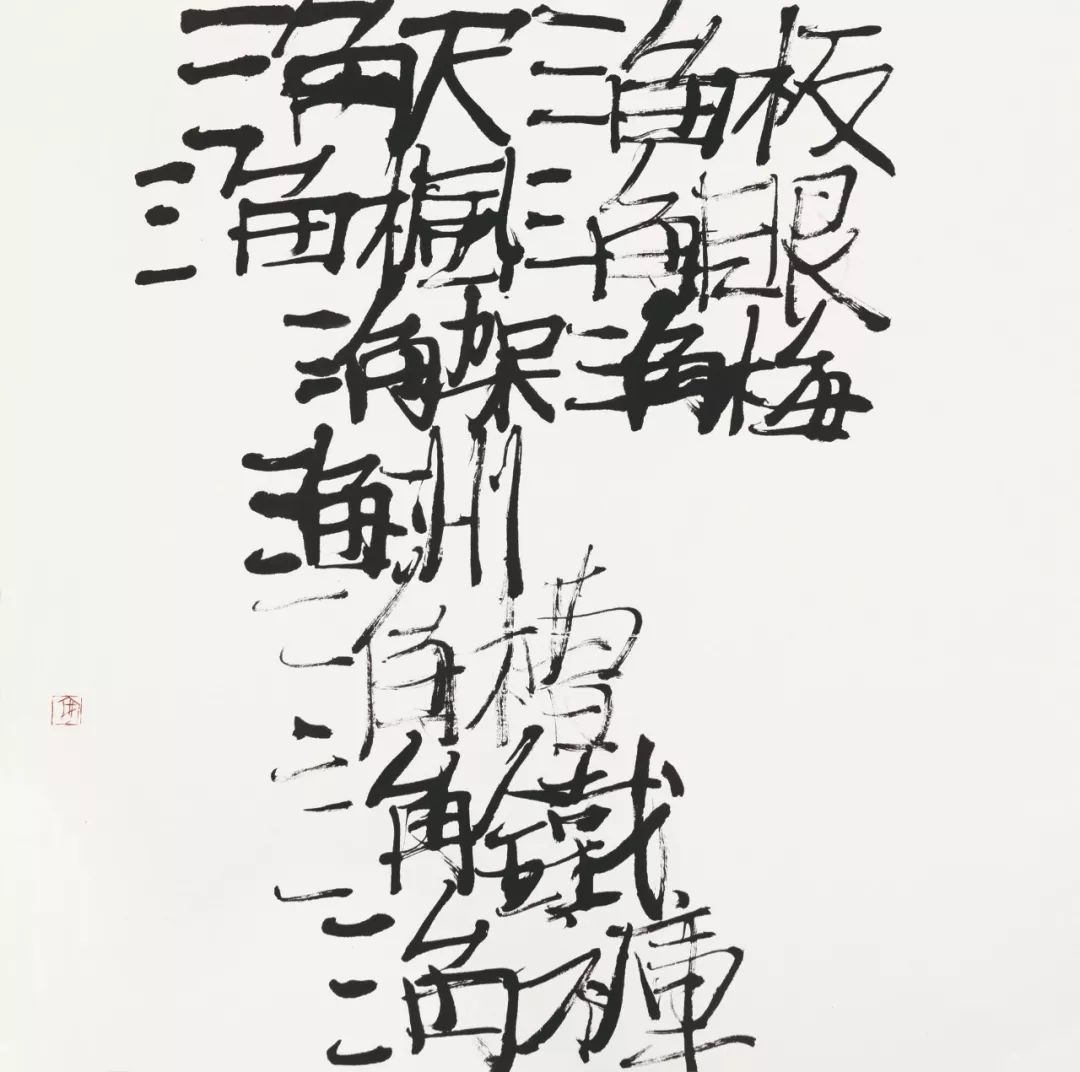 三角尺 三角板
三角楓 三角眼
三角架 三角梅
三角洲
三角槽
三角鐵
三角褲